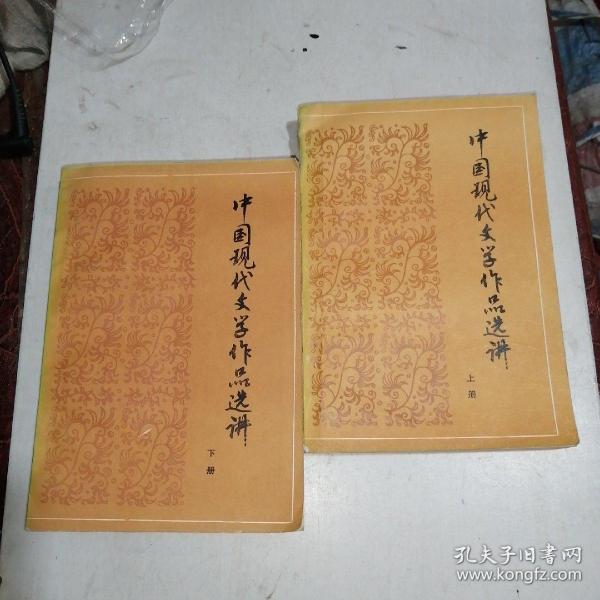 中国现代文学作品选讲
下册
中国现代文学作品选讲
上册
孔夫子旧书网
www.kongfz.com